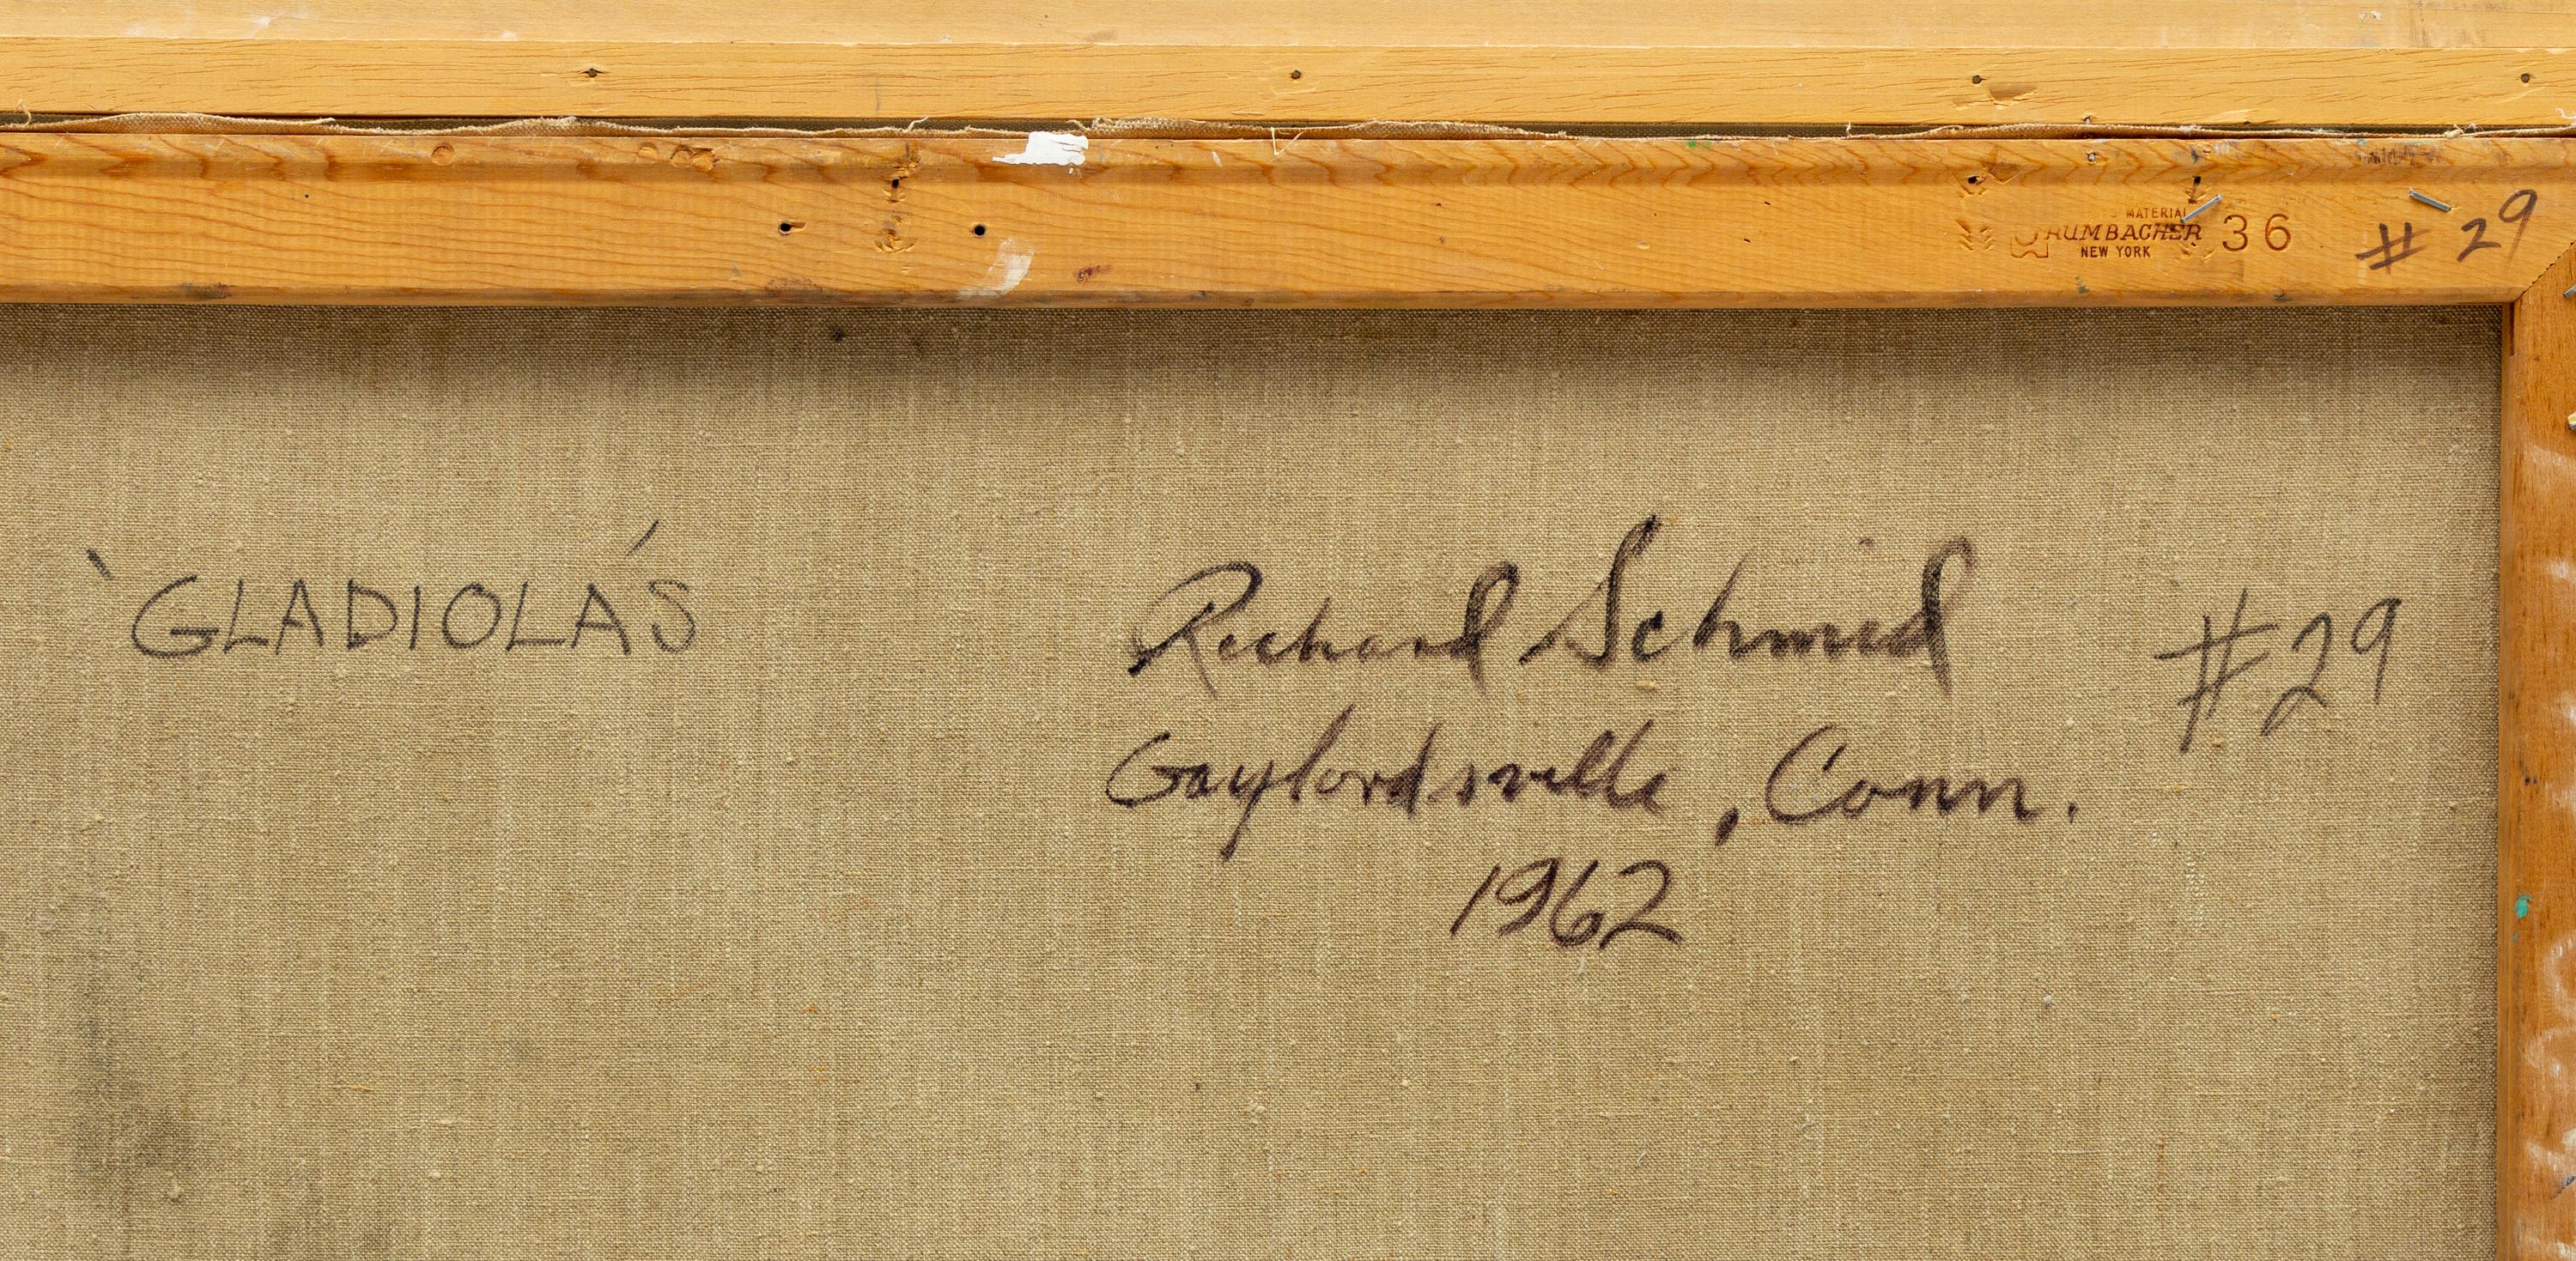 MATERIAL
GRUMBACHER 36 # 29
NEW YORK
'GLADIOLA'S
Richard Schmid #29
Gaylordsville, Conn.
1962